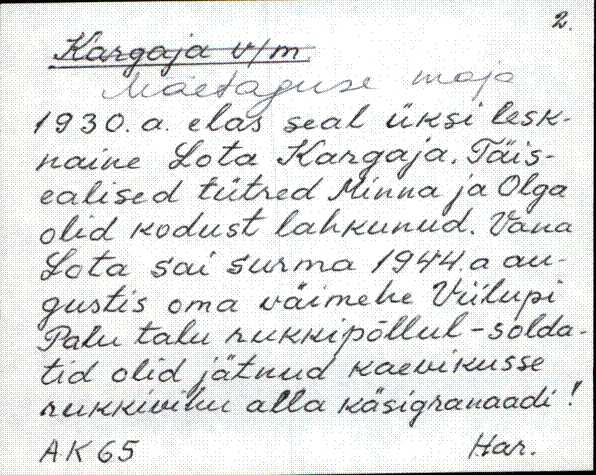 2.
Kargaja v/m
Mäetaguse maja
1930. a. elas seal üksi lesk-
naine Lota Kargaja. Täis-
ealised tütred Minna ja Olga
olid kodust lahkunud. Vana
Lota sai surma 1944. a au-
gustis oma väimehe Viilupi
Palu talu rukkipõllul - solda-
tid olid jätnud kaevikusse
rukkivihu alla käsigranaadi!
AK 65 Har.